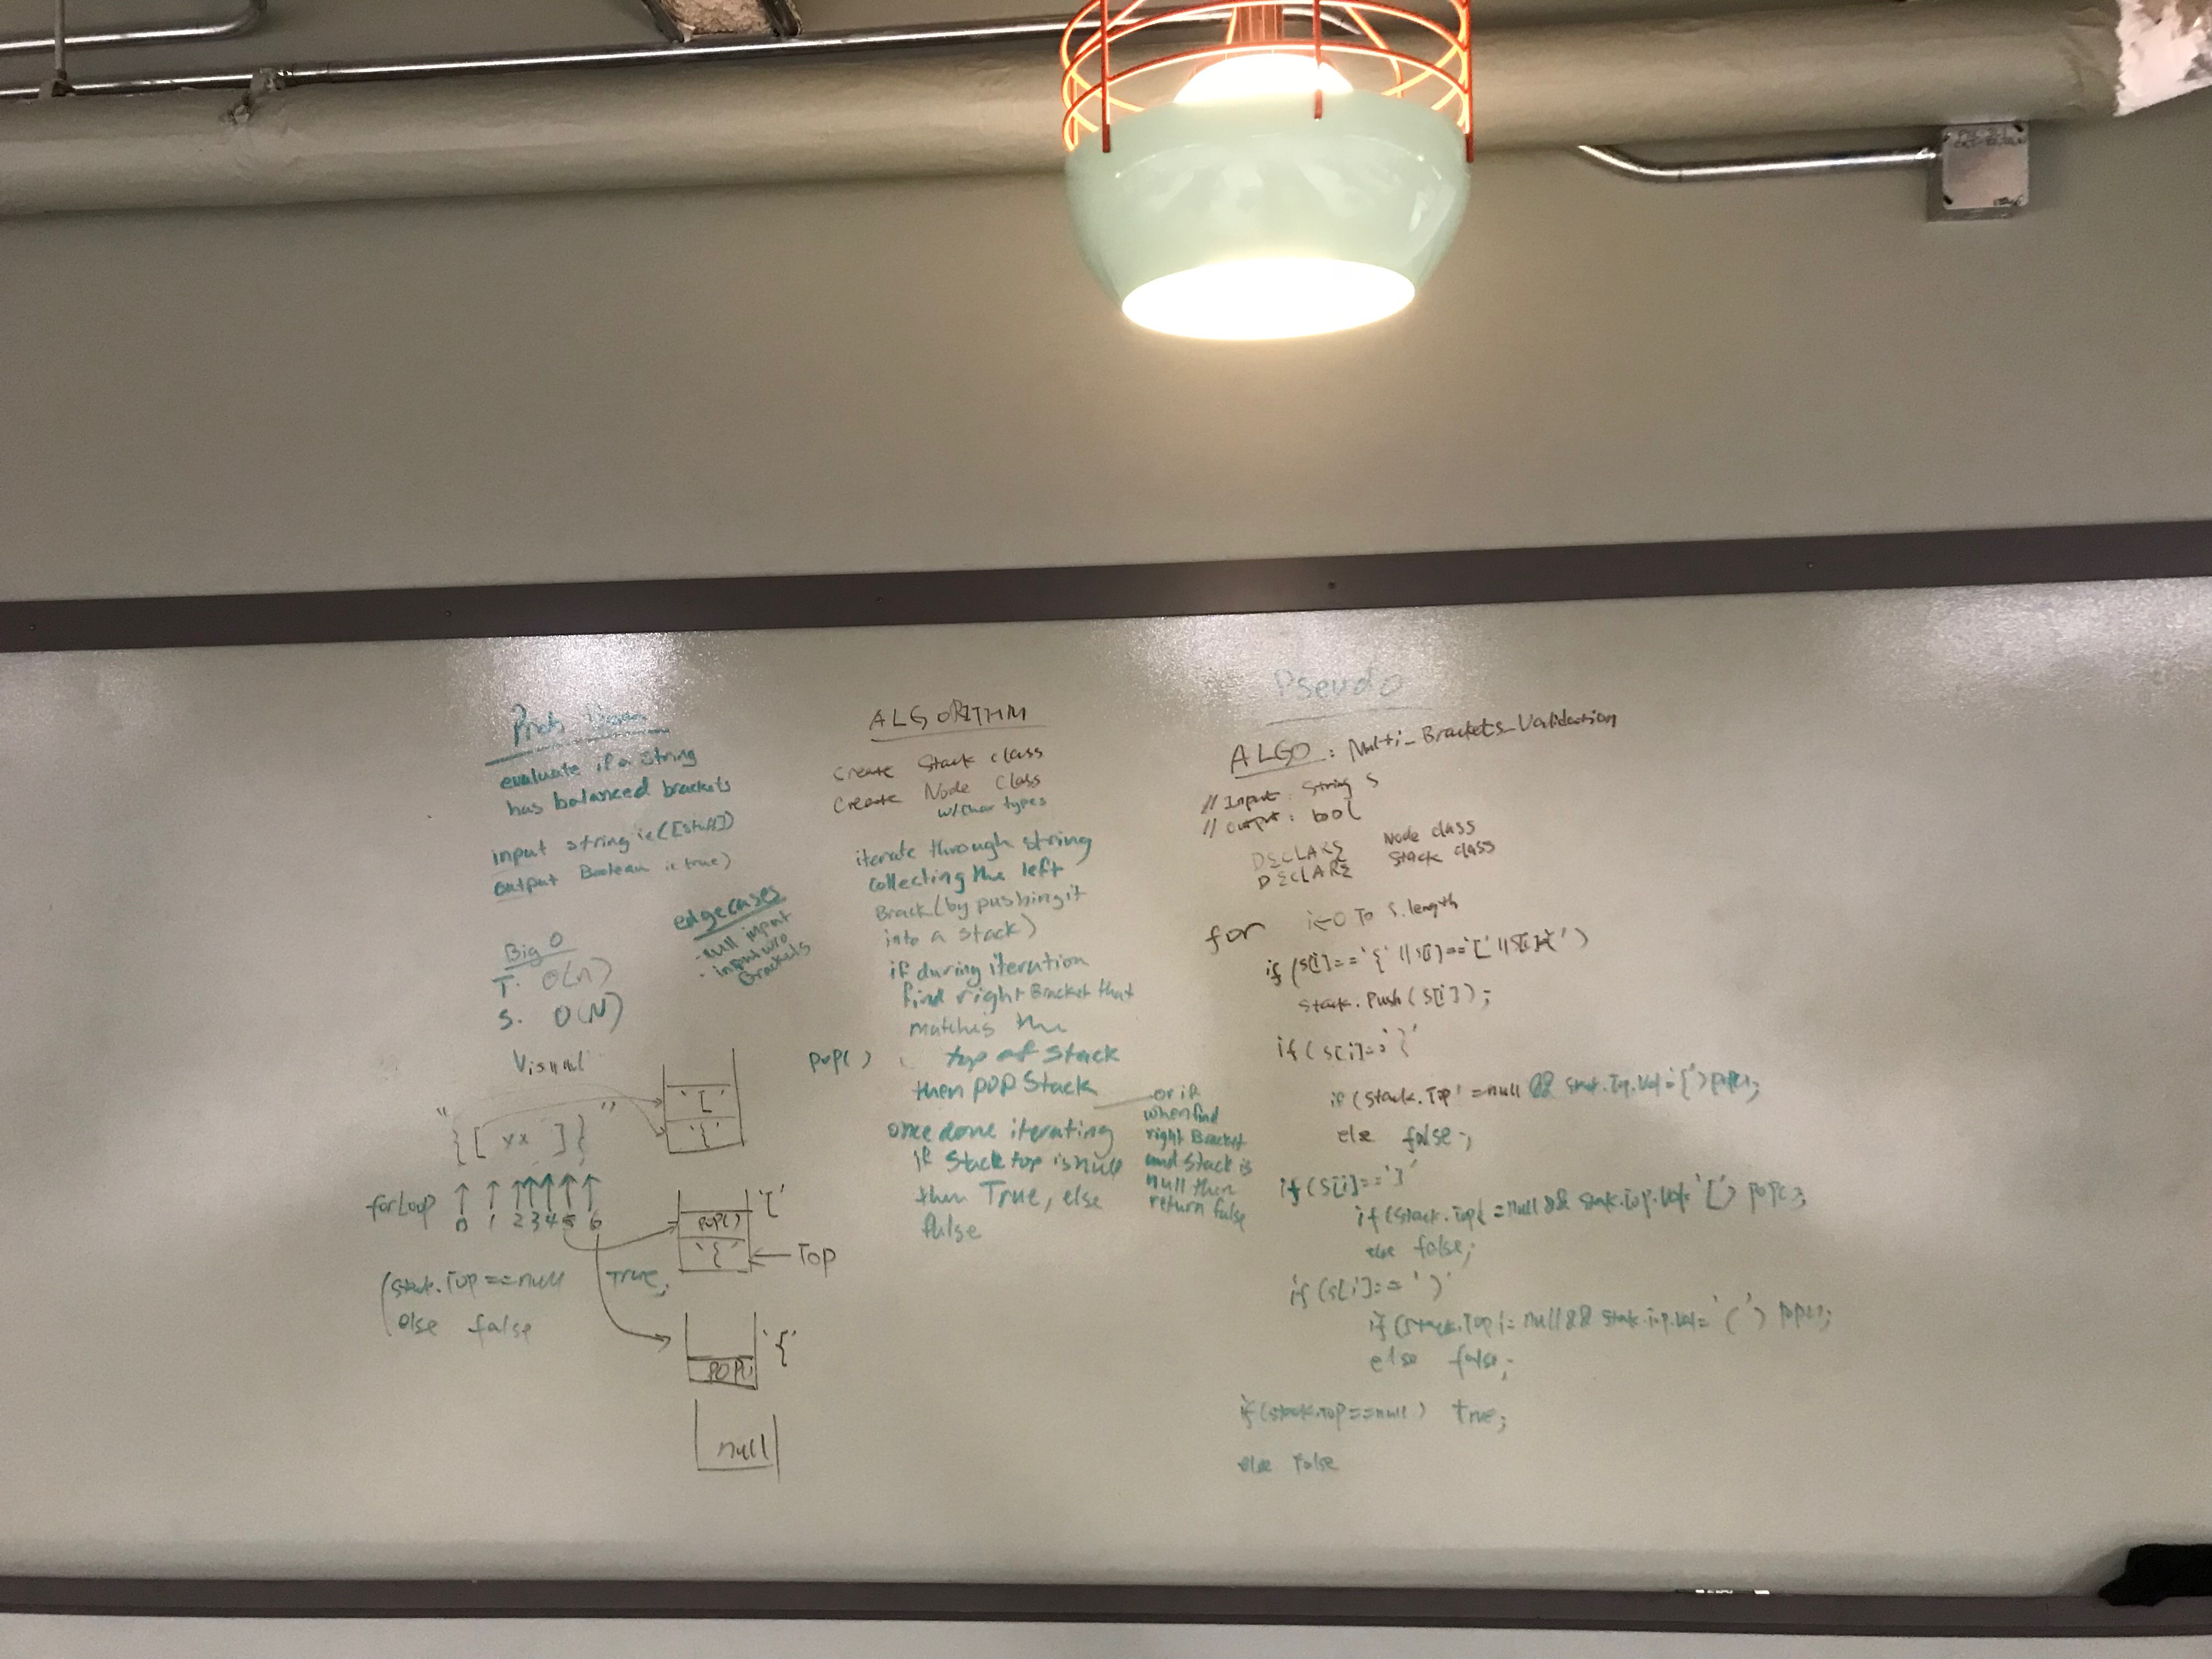 Prob
evaluate if a string
has balanced brackets
input string ie ([stuff])
output Boolean ie true)
edgecases
- null input
- input w/o
Brackets
Big O
T. O(n)
S. O(N)
Visual
"{[ xx ]}"
for Loop
0 1 2 3 4 5 6
(stack.Top == null True;
else false
'['
'{'
'['
POP()
'{'
Top
'{'
POP()
null
ALGORITHM
Create Stack class
Create Node Class
w/ char types
iterate through string
collecting the left
Brack (by pushing it
into a stack)
if during iteration
find right Bracket that
matches the
POP() top of stack
then pop Stack
once done iterating
if Stack top is null
then True, else
false
or if
when find
right Bracket
and stack is
null then
return false
Pseudo
ALGO : Multi_Brackets_Validation
// Input : String S
// Output : bool
DECLARE Node class
DECLARE Stack class
for i←0 To S.length
if (S[i]=='{' || S[i]=='[' || S[i]
Stack.Push(S[i]);
if (S[i]=='}'
if (Stack.Top != null && Stack.Top.Val='{') pop();
else false;
if (S[i]==']'
if (Stack.Top != null && Stack.Top.Val='[') pop();
else false;
if (S[i]==')'
if (Stack.Top != null && Stack.Top.Val='(') pop();
else false;
if (stack.Top==null) true;
else false